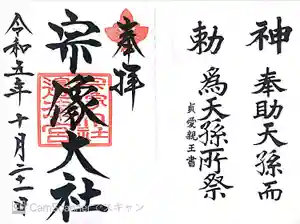 神勅
奉助天孫而
為天孫所祭
貞愛親王書
奉拝
宗像大社
令和五年十月二十一日
CamScanner でスキャン